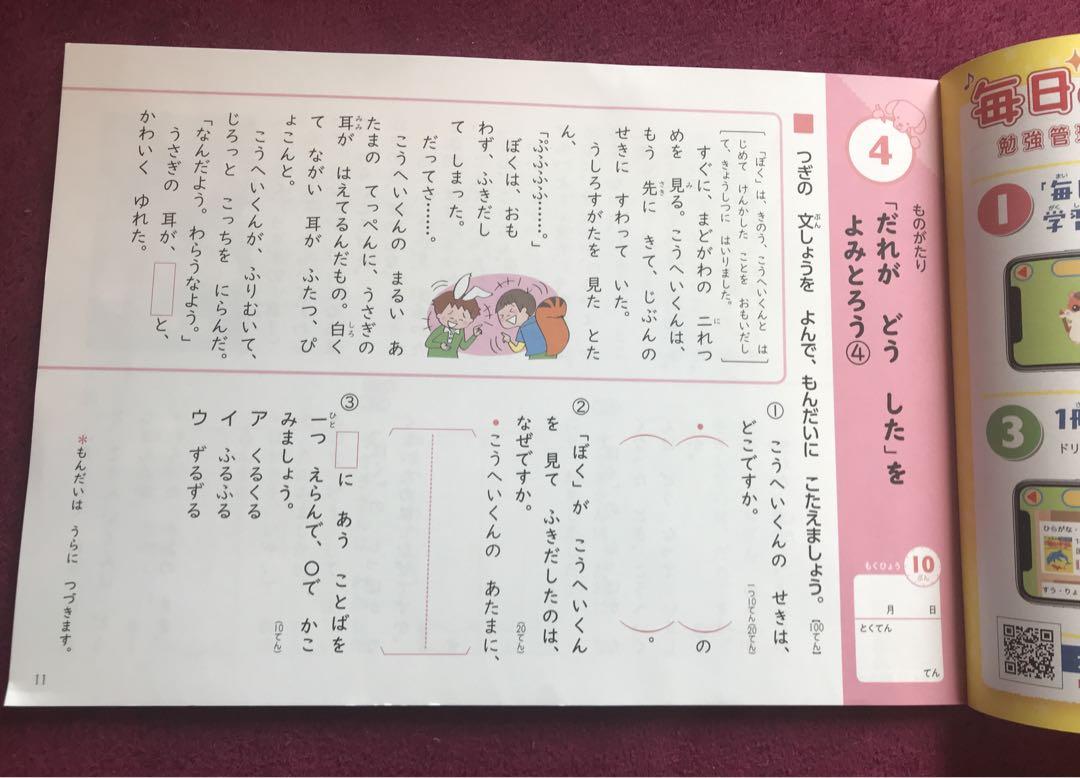 4
ものがたり
「だれが どう した」を
よみとろう④
もくひょう
10ぷん
月 日
とくてん
てん
つぎの 文しょうを よんで、もんだいに こたえましょう。
ぶん
【100てん】
「ぼく」は、きのう、こうへいくんと は
じめて けんかした ことを おもいだし
て、きょうしつに はいりました。
すぐに、まどがわの 二れつ
に
めを 見る。こうへいくんは、
み
もう 先に きて、じぶんの
さき
せきに すわって いた。
うしろすがたを 見た とた
ん、
「ぷふふふふ……。」
ぼくは、おも
わず、ふきだし
て しまった。
だってさ……。
こうへいくんの まるい あ
たまの てっぺんに、うさぎの
耳が はえてるんだもの。白く
みみ
しろ
て ながい 耳が ふたつ、ぴ
ょこんと。
こうへいくんが、ふりむいて、
じろっと こっちを にらんだ。
「なんだよう。わらうなよう。」
うさぎの 耳が、□と、
かわいく ゆれた。
① こうへいくんの せきは、
どこですか。
一つ10てん【20てん】
の
。
② 「ぼく」が こうへいくん
を 見て ふきだしたのは、
なぜですか。
【20てん】
・こうへいくんの あたまに、
③ □に あう ことばを
一つ えらんで、〇で かこ
ひと
みましょう。
【10てん】
ア くるくる
イ ふるふる
ウ ずるずる
＊もんだいは うらに つづきます。
11
毎日
勉強管理
1
「毎
まい
学習
がく
3
1冊
ドリ
ひらがな・